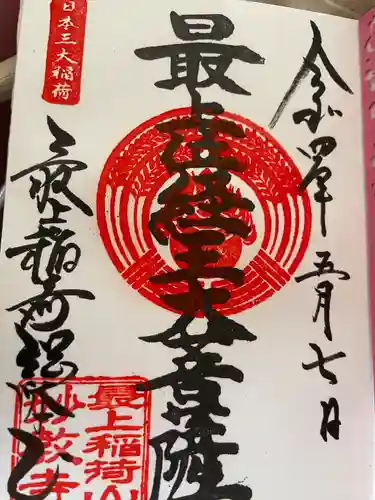 令和四年 五月七日
最上位経王大菩薩
日本三大稲荷
最上稲荷総本山
最上稲荷山
妙教寺